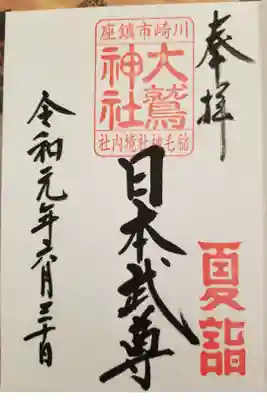 奉拝
夏詣
川崎市鎮座
大鷲神社
稲毛神社境内社
日本武尊
令和元年六月三十日